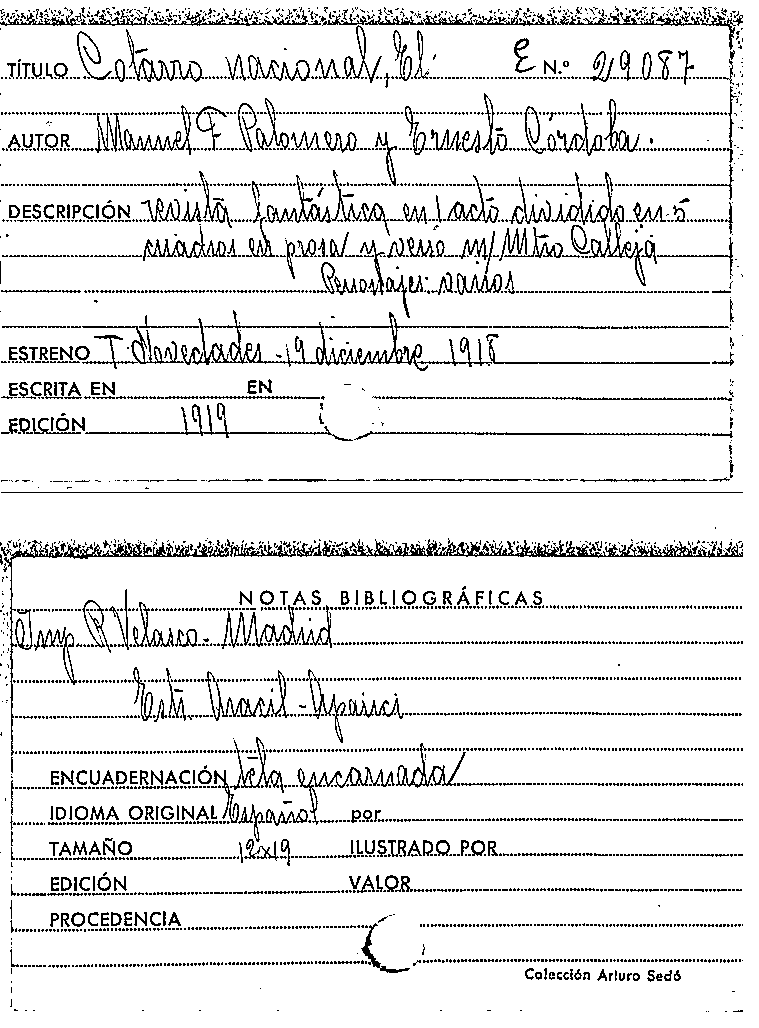 TÍTULO Cotarro nacional, El E N.º 29087
AUTOR Manuel F Palomero y Ernesto Córdoba.
DESCRIPCIÓN revista fantástica en 1 acto dividido en 5
cuadros en prosa y verso m/ Mtro Calleja
Personajes: varios
ESTRENO T. Novedades - 19 diciembre 1918
ESCRITA EN EN
EDICIÓN 1919
NOTAS BIBLIOGRÁFICAS
Imp R Velasco - Madrid
Estr. Aracil - Aparici
ENCUADERNACIÓN tela encarnada
IDIOMA ORIGINAL Español por
TAMAÑO 12x19 ILUSTRADO POR
EDICIÓN VALOR
PROCEDENCIA
Colección Arturo Sedó